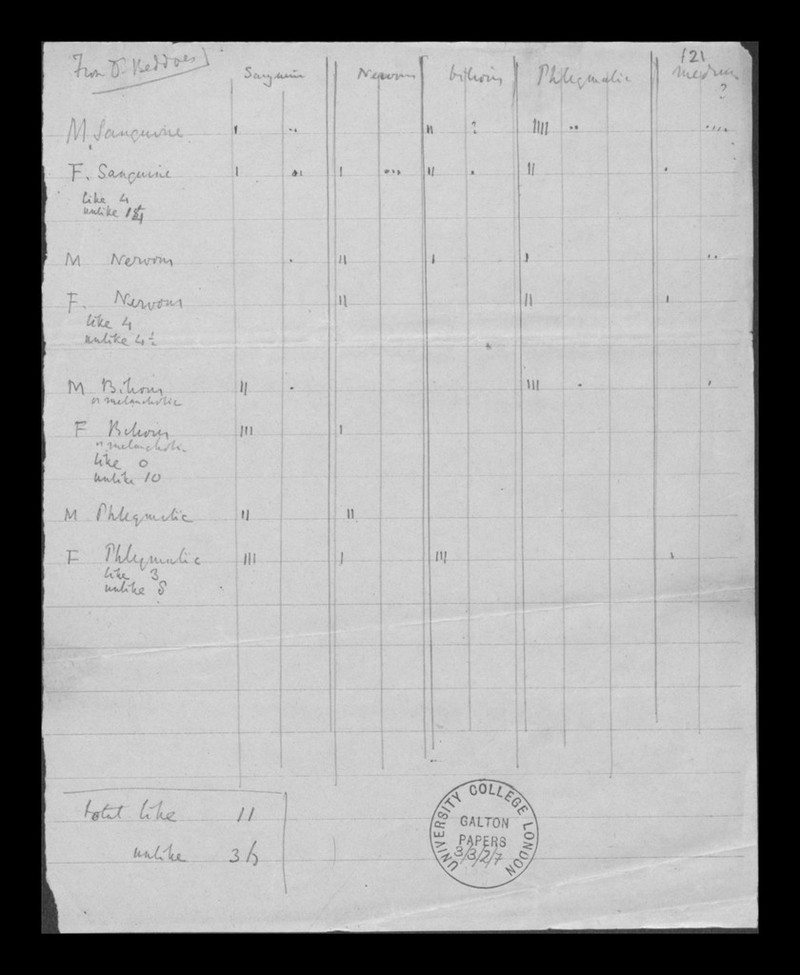 From Dr Beddoes
121
Sanguine Nervous bilious Phlegmatic medium ?
M. Sanguine ?
F. Sanguine
like 4
unlike
M Nervous
F. Nervous
like 4
unlike 4½
M Bilious
or melancholic
F Bilious
or melancholic
like 0
unlike 10
M Phlegmatic
F Phlegmatic
like 3
unlike 8
total like 11
unlike 36
UNIVERSITY COLLEGE LONDON
GALTON
PAPERS
3/3/2/7